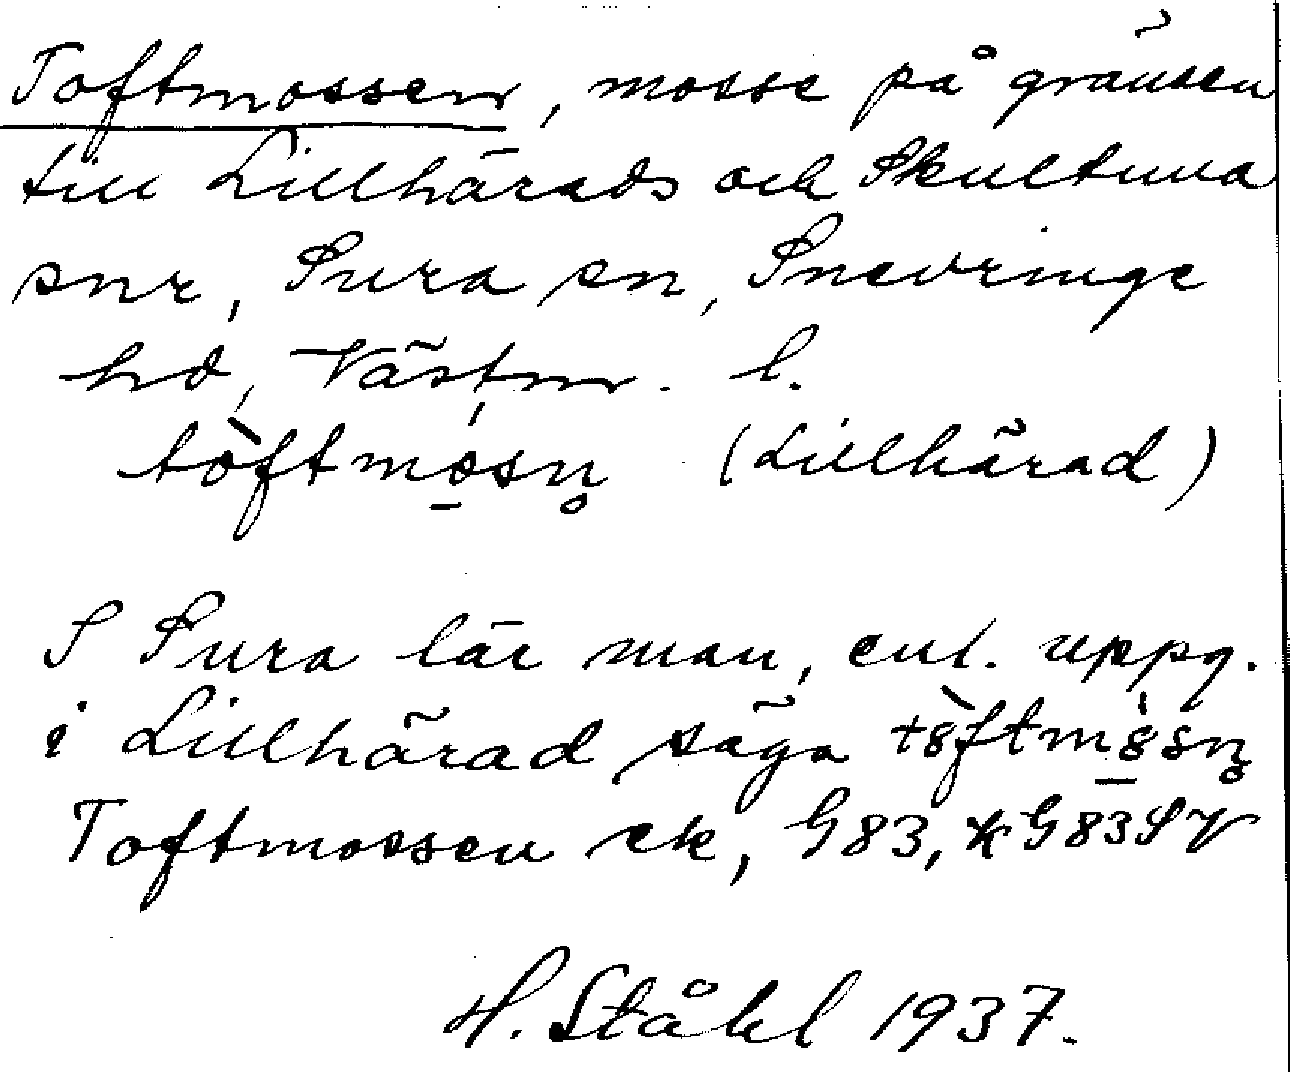 Toftmossen, mosse på gränsen
till Lillhärads och Skultuna
snr, Sura sn, Snevringe
hd, Västm. l.
tòftmo̱sn̥ (Lillhärad)
I Sura lär man, enl. uppg.
i Lillhärad säga t8̀ftm8̱̀sn̥
Toftmossen ek, G83, xG83SV
H. Ståhl 1937.